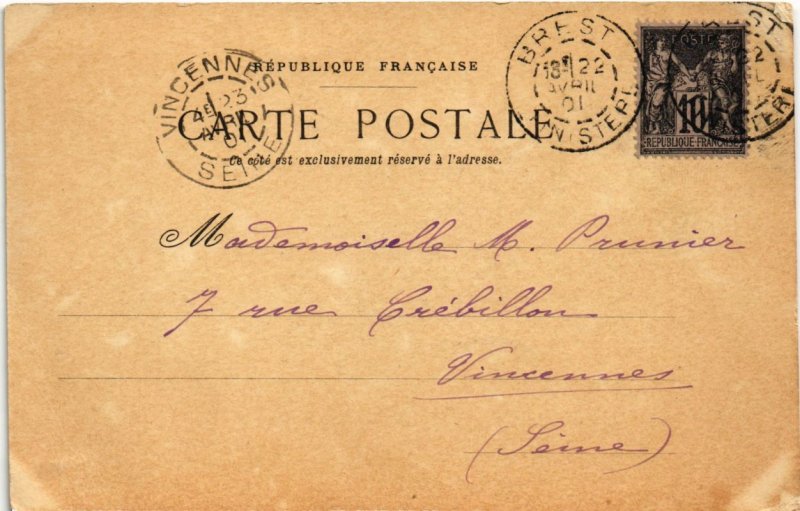 RÉPUBLIQUE FRANÇAISE
CARTE POSTALE
Ce côté est exclusivement réservé à l'adresse.
VINCENNES
23
AVRIL
01
SEINE
BREST
22
AVRIL
01
FINISTERE
POSTES
10
REPUBLIQUE FRANÇAISE
Mademoiselle M. Prunier
7 rue Crébillon
Vincennes
(Seine)